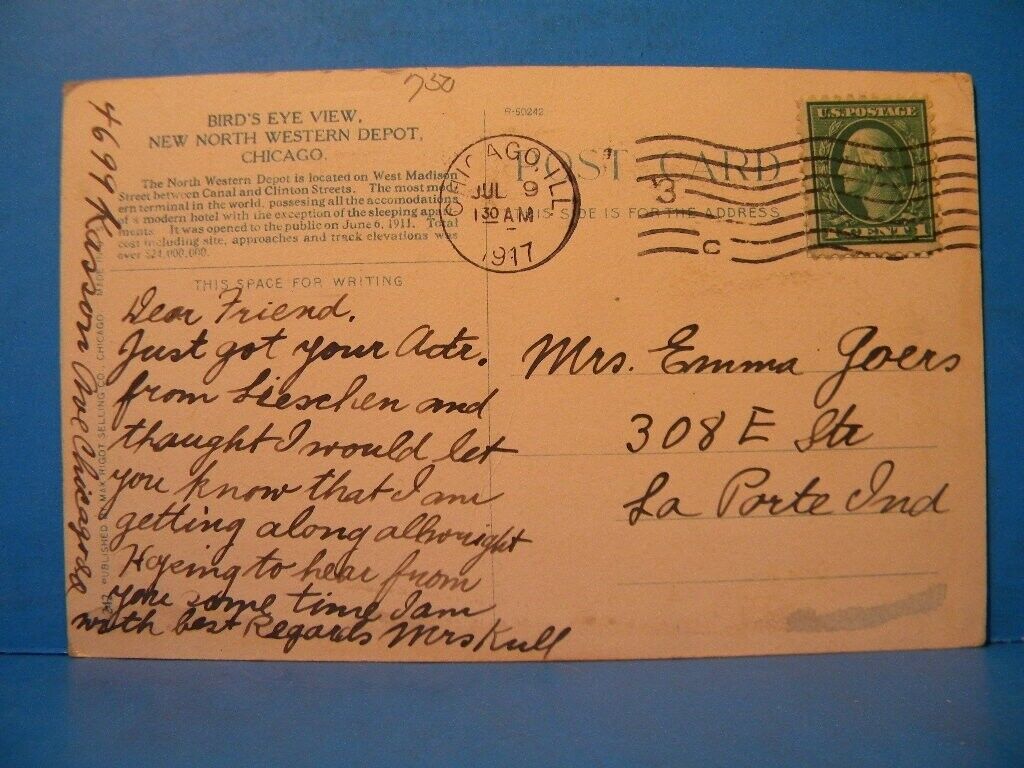 750
BIRD'S EYE VIEW,
NEW NORTH WESTERN DEPOT,
CHICAGO.
The North Western Depot is located on West Madison
Street between Canal and Clinton Streets. The most mod-
ern terminal in the world, possesing all the accomodations
of a modern hotel with the exception of the sleeping apart-
ments. It was opened to the public on June 6, 1911. Total
cost including site, approaches and track elevations was
over $24,000,000.
THIS SPACE FOR WRITING
Dear Friend.
Just got your Adr.
from Lieschen and
thaught I would let
you know that I am
getting along allwright
Hoping to hear from
you some time I am
with best Regards Mrs Kull
4699 Ave Chicago
PUBLISHED BY MAX RIGOT SELLING CO., CHICAGO
R-50242
POST CARD
THIS SIDE IS FOR THE ADDRESS
CHICAGO, ILL
JUL 9
1 30 AM
1917
3
C
U.S. POSTAGE
1 CENT 1
Mrs. Emma Goers
308 E Str
La Porte Ind